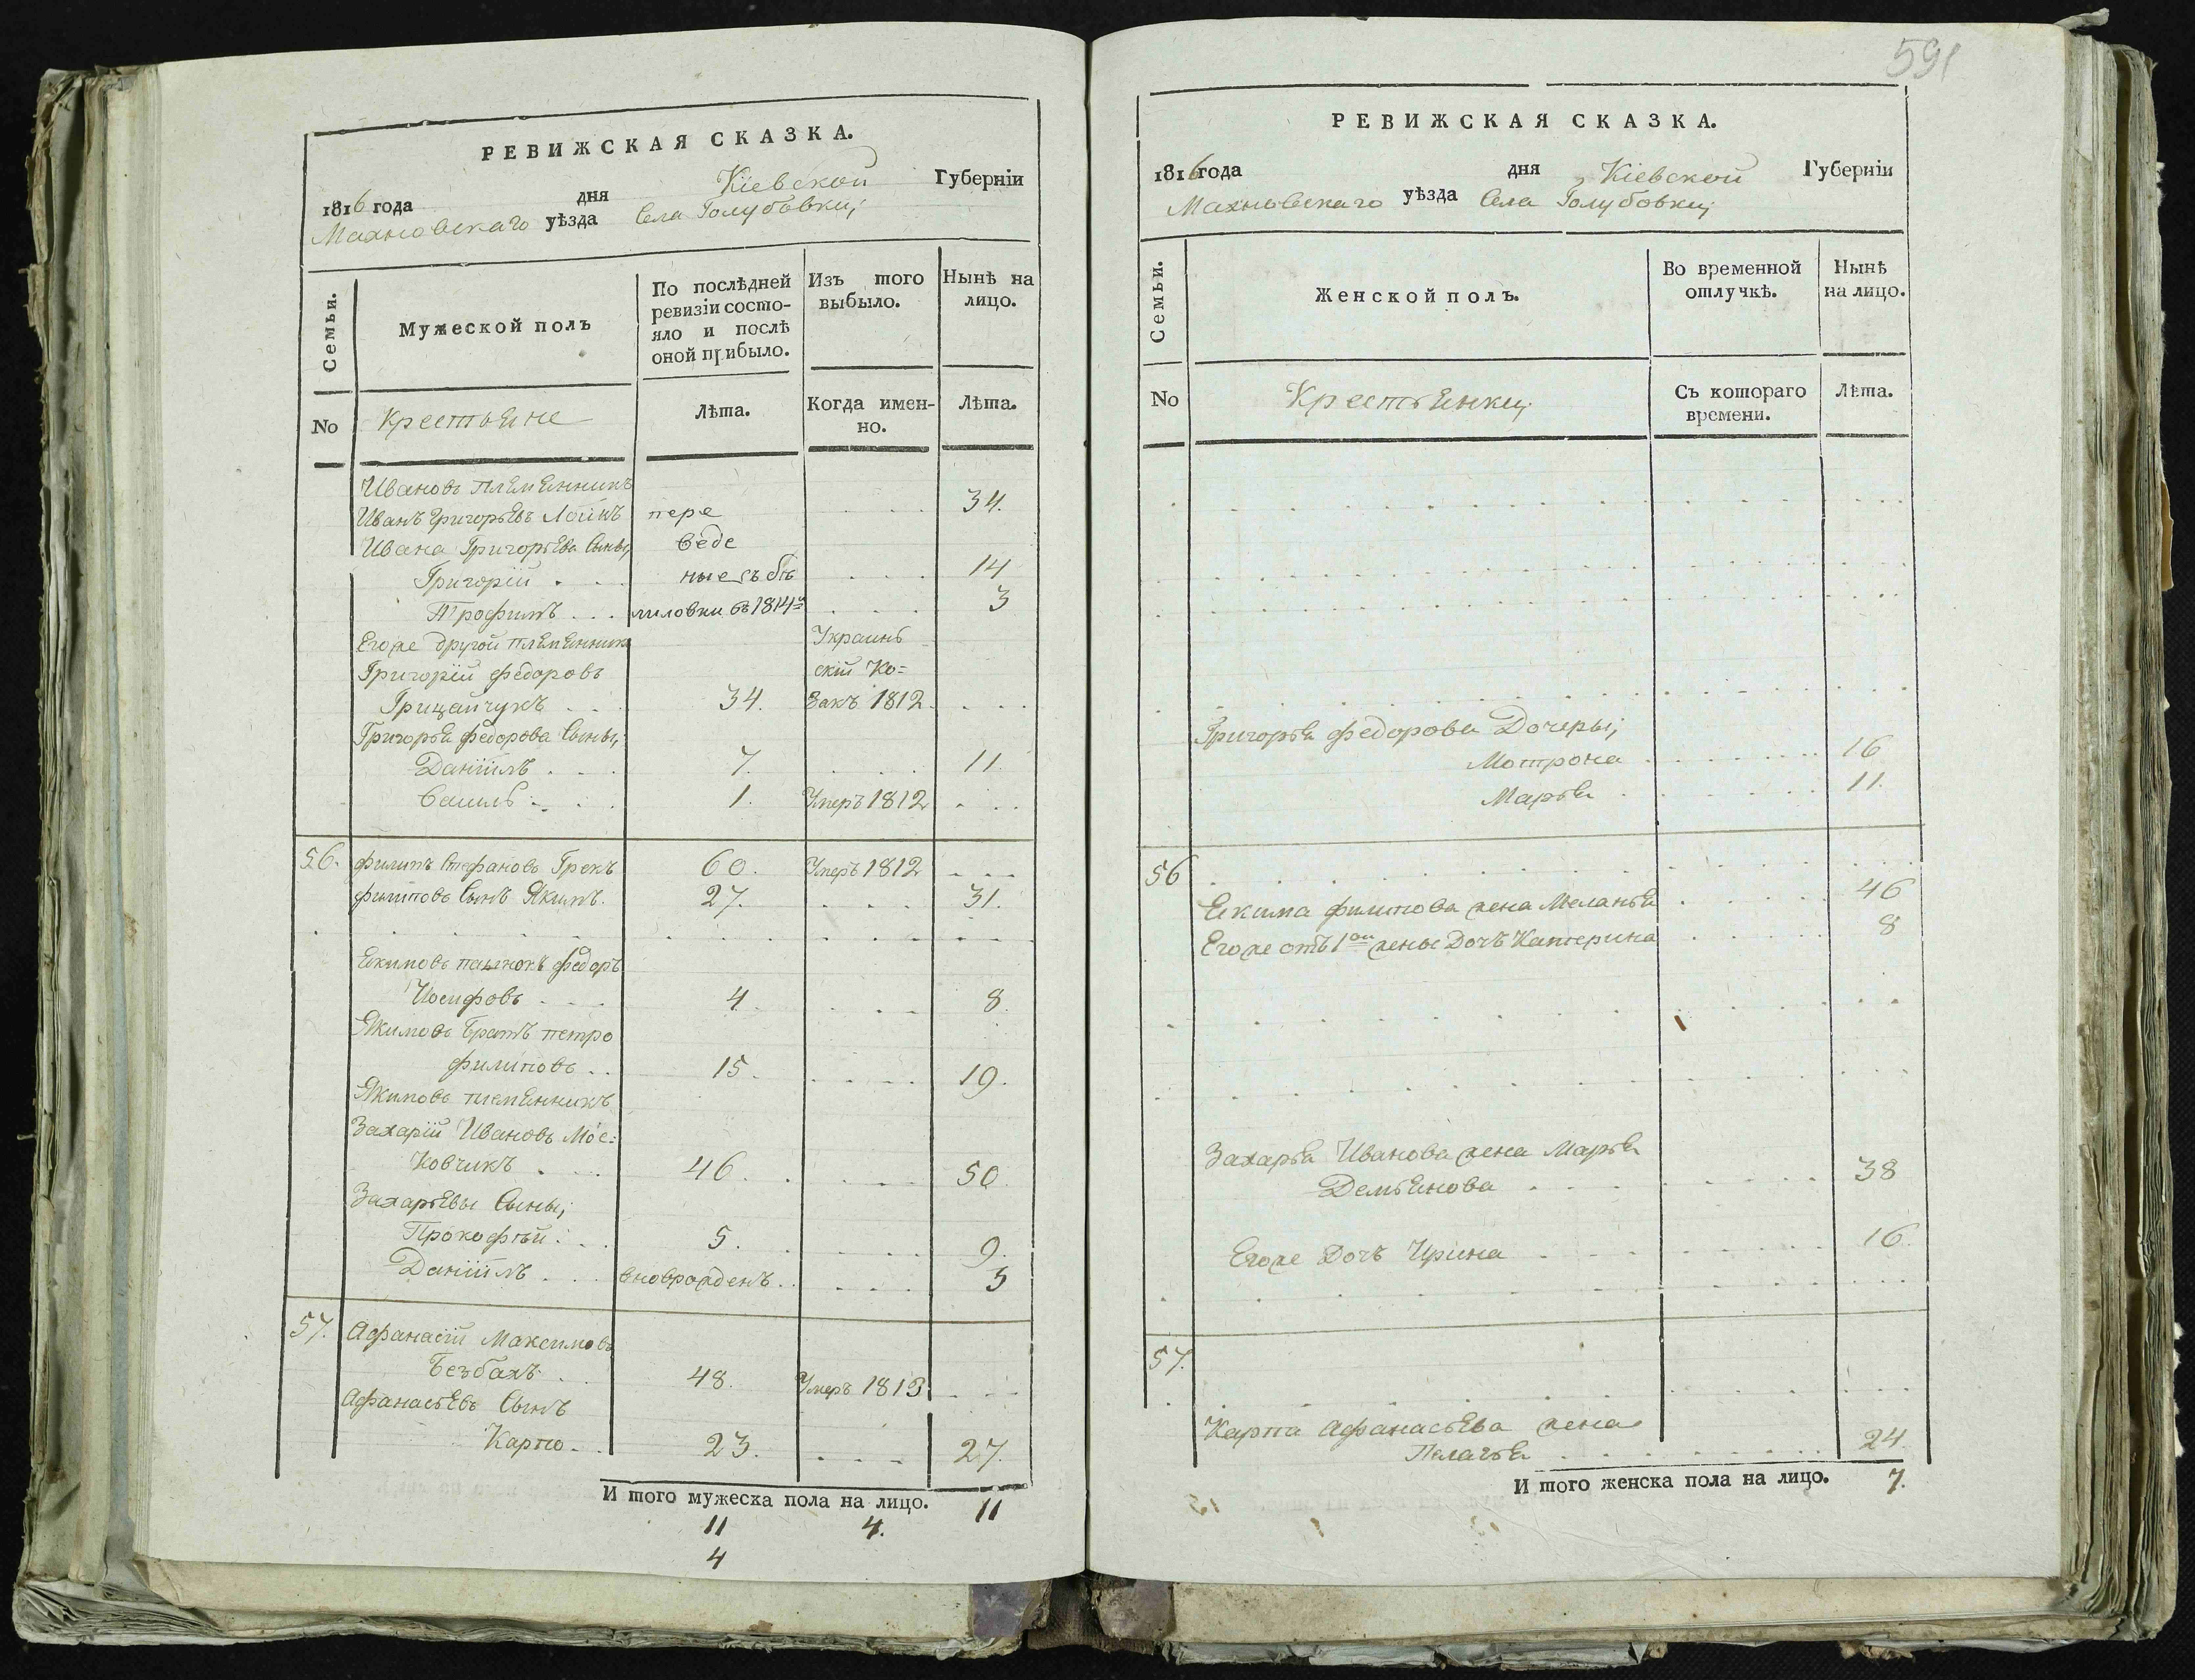 РЕВИЖСКАЯ СКАЗКА.
1816 года дня Кіевской Губерніи
Махновскаго уѣзда Села Голубовки;
Семьи.
Мужеской полъ
По послѣдней ревизіи состо-
яло и послѣ
оной прибыло.
Изъ того
выбыло.
Нынѣ на
лицо.
No
Крестьяне
Лѣта.
Когда имен-
но.
Лѣта.
Ивановъ племянникъ
Иванъ Григорьевъ пере 34.
Ивана Григорьева Сыны, веде
Григорій ные съ бѣ 14
Трофимъ лиловки въ 1814 3
Егоже другой племянникъ Украинъ
Григорій федоровъ скій Ко=
Грицайчукъ 34. закъ 1812.
Григорья федорова Сыны,
Даніилъ 7. 11.
Василь 1. Умеръ 1812
56. филипъ Стефановъ Грекъ 60. Умеръ 1812
филиповъ Сынъ Якимъ. 27. 31.
Якимовъ федоръ
Иосифовъ 4. 8.
Якимовъ братъ петро
филиповъ 15. 19.
Якимовъ племянникъ
Захарій Ивановъ Мос=
ковчикъ 46. 50
Захарьевы Сыны;
Прокофій 5. 9.
Даніилъ вноврожденъ. 3
57. Афанасій Максимовъ
Безбахъ 48. Умеръ 1813
Афанасьевъ Сынъ
Карпо 23. 27.
И того мужеска пола на лицо. 11
11 4.
4
591
РЕВИЖСКАЯ СКАЗКА.
1816 года дня Кіевской Губерніи
Махновскаго уѣзда Села Голубовки;
Семьи.
Женской полъ.
Во временной
отлучкѣ.
Нынѣ
на лицо.
No
Крестьянки;
Съ котораго
времени.
Лѣта.
Григорья федорова Дочеры;
Мотрона 16
Марья 11.
56
Якима филипова жена Меланья 46
Егоже отъ 1ой жены Дочъ Катерина 8
Захарья Иванова жена Марья
Демьянова 38
Егоже Дочъ Ирина 16.
57.
Карпа Афанасьева жена
Пелагья 24.
И того женска пола на лицо. 7.